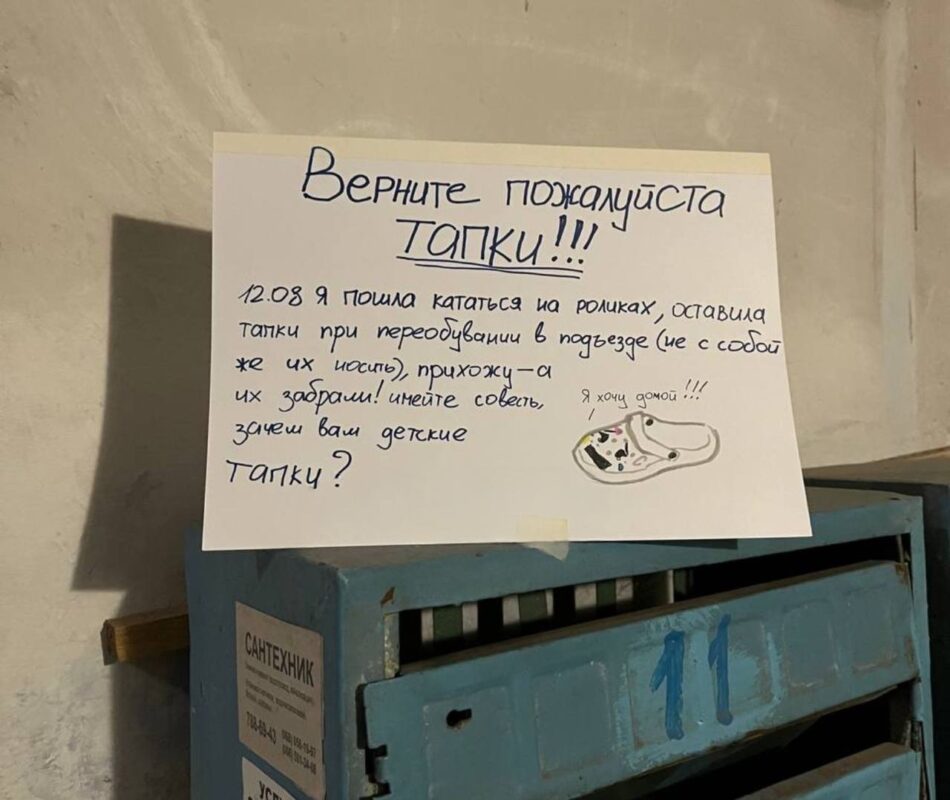 Верните пожалуйста
тапки!!!
12.08 Я пошла кататься на роликах, оставила
тапки при переобувании в подъезде (не с собой
же их носить), прихожу-а
их забрали! имейте совесть,
зачем вам детские
тапки?
Я хочу домой!!!
11
САНТЕХНИК
788-69-43
УСЛ